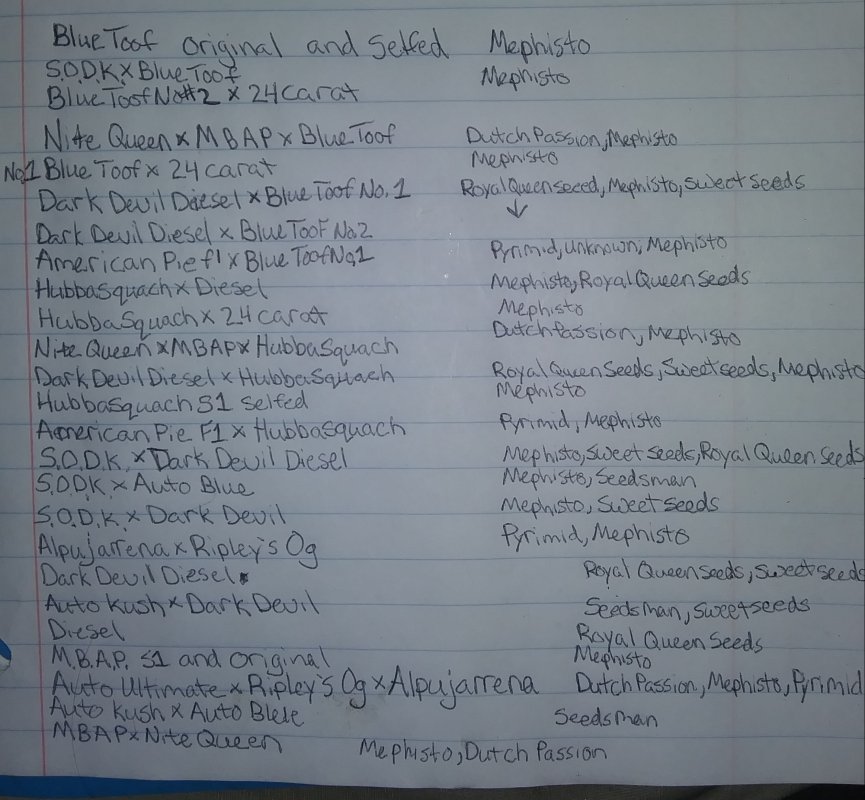 Blue Toof Original and Selfed Mephisto
S.O.D.K. x Blue Toof Mephisto
Blue Toof No#2 x 24 carat
Nite Queen x MBAP x Blue Toof Dutch Passion, Mephisto
No.1 Blue Toof x 24 carat Mephisto
Dark Devil Diesel x Blue Toof No. 1 Royal Queen seeed, Mephisto, Sweet Seeds
Dark Devil Diesel x Blue Toof No.2 ↓
American Pie f1 x Blue Toof No,1 Pyrimid, unknown, Mephisto
HubbaSquach x Diesel Mephisto, Royal Queen Seeds
HubbaSquach x 24 carat Mephisto
Nite Queen x MBAP x HubbaSquach Dutch Passion, Mephisto
Dark Devil Diesel x HubbaSquach Royal Queen Seeds, Sweet seeds, Mephisto
HubbaSquach S1 Selfed Mephisto
American Pie F1 x Hubbasquach Pyrimid, Mephisto
S.O.D.K. x Dark Devil Diesel Mephisto, Sweet Seeds, Royal Queen Seeds
S.O.D.K. x Auto Blue Mephisto, Seedsman
S.O.D.K. x Dark Devil Mephisto, Sweet Seeds
Alpujarrena x Ripley's Og Pyrimid, Mephisto
Dark Devil Diesel Royal Queen Seeds, Sweet seeds
Auto Kush x Dark Devil Seedsman, Sweetseeds
Diesel Royal Queen Seeds
M.B.A.P. S1 and Original Mephisto
Auto Ultimate x Ripley's Og x Alpujarrena Dutch Passion, Mephisto, Pyrimid
Auto Kush x Auto Blue Seedsman
MBAP x Nite Queen Mephisto, Dutch Passion